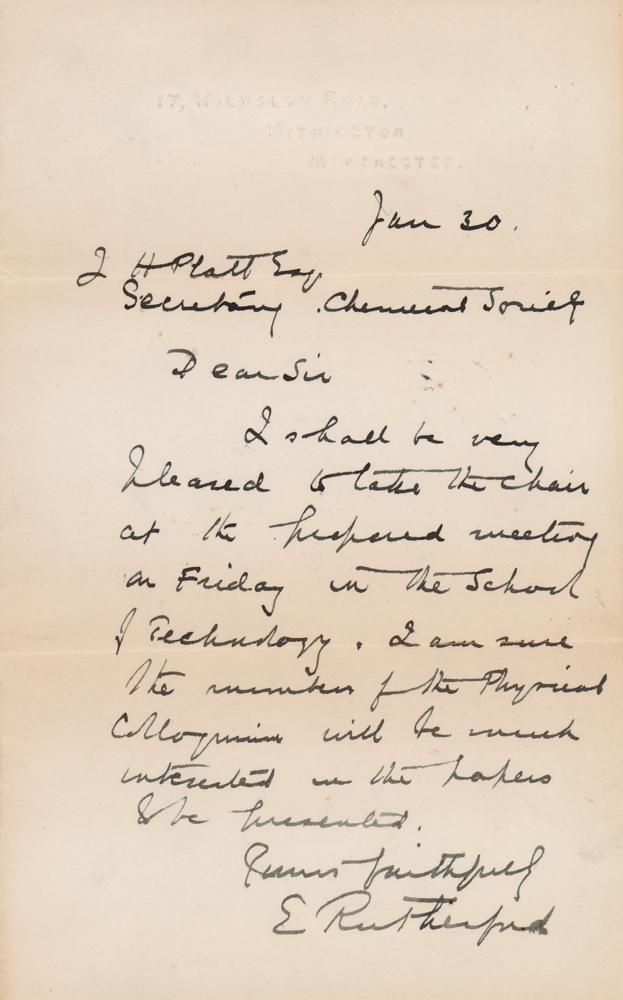 17, WILMSLOW ROAD,
WITHINGTON,
MANCHESTER.
Jan 30.
J H Platt Esq
Secretary. Chemical Society
Dear Sir
I shall be very
pleased to take the chair
at the proposed meeting
on Friday in the School
of Technology. I am sure
the members of the Physical
Colloquium will be much
interested in the papers
to be presented.
Yours faithfully
E Rutherford